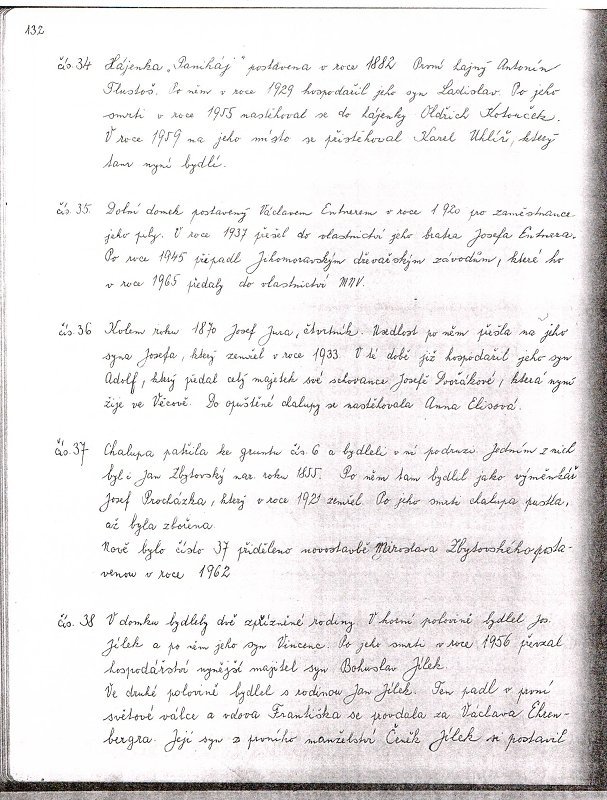 132
čís. 34 Hájenka „Paniháj" postavena v roce 1882 První hajný Antonín
Tlustoš. Po něm v roce 1929 hospodařil jeho syn Ladislav. Po jeho
smrti v roce 1955 nastěhoval se do hájenky Oldřich Kotouček.
V roce 1959 na jeho místo se přistěhoval Karel Uhlíř, který
tam nyní bydlí.
čís. 35 Dolní domek postavený Václavem Entnerem v roce 1920 pro zaměstnance
jeho pily. V roce 1937 přešel do vlastnictví jeho bratra Josefa Entnera.
Po roce 1945 připadl Jihomoravským dřevařským závodům, které ho
v roce 1965 předaly do vlastnictví MNV.
čís. 36 Kolem roku 1870 Josef Jura, čtvrtník. Usedlost po něm přešla na jeho
syna Josefa, který zemřel v roce 1933. V té době již hospodařil jeho syn
Adolf, který předal celý majetek své schovance Josefě Dvořákové, která nyní
žije ve Věcově. Do opuštěné chalupy se nastěhovala Anna Elisová.
čís. 37 Chalupa patřila ke gruntu čís. 6 a bydleli v ní podruzi. Jedním z nich
byl i Jan Zbytovský nar. roku 1855. Po něm tam bydlil jako výměnkář
Josef Procházka, který v roce 1921 zemřel. Po jeho smrti chalupa pustla,
až byla zbořena.
Nově bylo číslo 37 přiděleno novostavbě Miroslava Zbytovského posta-
venou v roce 1962
čís. 38 V domku bydlely dvě zpřízněné rodiny. V horní polovině bydlel Jos.
Jílek a po něm jeho syn Vincenc. Po jeho smrti v roce 1956 převzal
hospodářství nynější majitel syn Bohuslav Jílek.
Ve druhé polovině bydlel s rodinou Jan Jílek. Ten padl v první
světové válce a vdova Františka se provdala za Václava Ehren-
bergra. Její syn z prvního manželství Čeněk Jílek si postavil